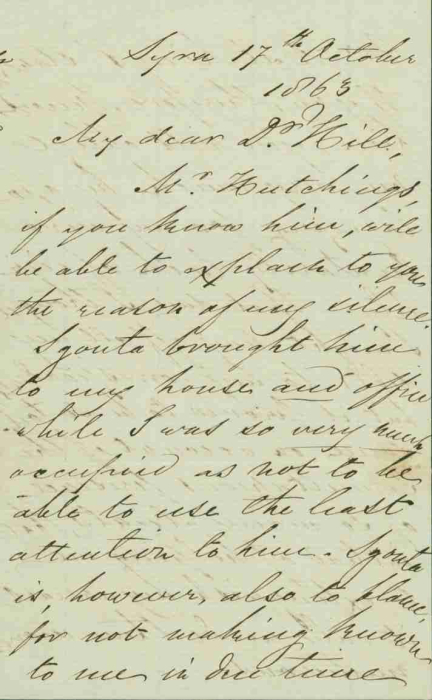 Syra 17th October
1863
My dear Dr. Hill,
Mr. Hutchings,
if you know him, will
be able to explain to you
the reason of my silence.
Sgouta brought him
to my house and office
while I was so very much
occupied as not to be
able to use the least
attention to him. Sgouta
is, however, also to blame,
for not making known
to me in due time